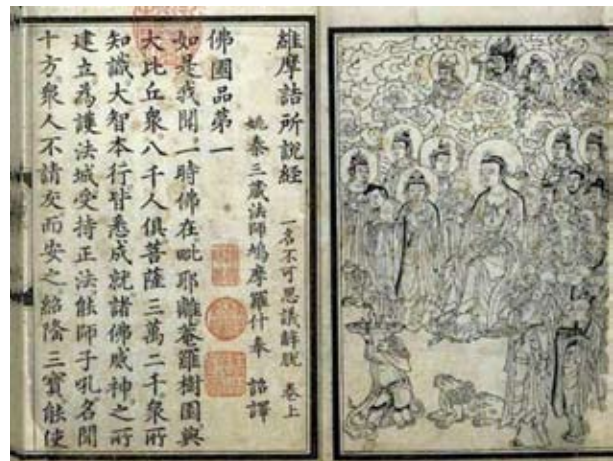 維摩詰所說经 一名不可思議解脫 卷上
姚秦三藏法師鳩摩羅什奉 詔譯
佛國品第一
如是我聞一時佛在毗耶離菴羅樹園與
大比丘衆八千人俱菩薩三萬二千衆所
知識大智本行皆悉成就諸佛威神之所
建立為護法城受持正法能師子吼名聞
十方衆人不請友而安之紹隆三寶能使